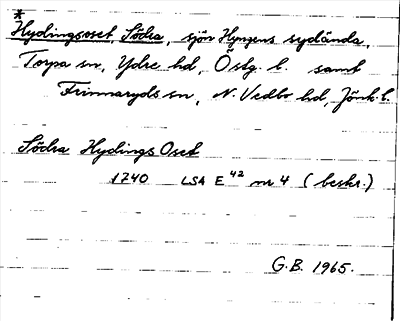 *
Hydingsoset, Södra, sjön Hyngens sydända,
Torpa sn, Ydre hd, Östg. l. samt
Frinnaryds sn, N. Vedbo hd, Jönk. l.
Södra Hydings Oset
1740 LSA E 42 nr 4 (beskr.)
G.B. 1965.